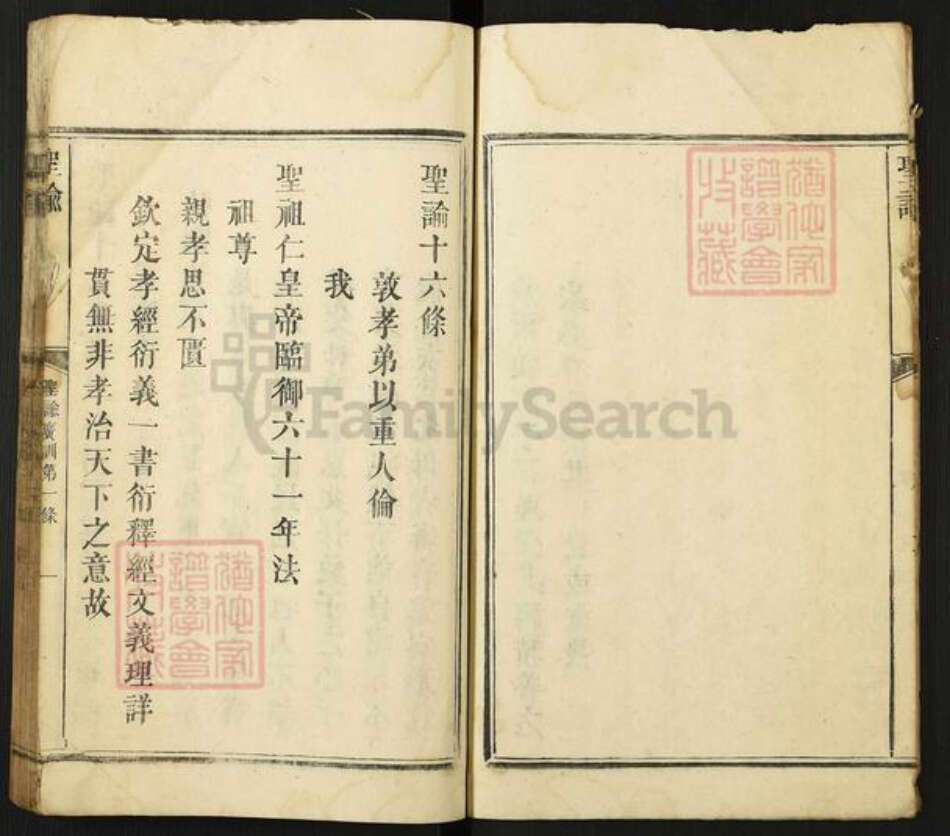 聖諭
聖諭十六條
敦孝弟以重人倫
我
聖祖仁皇帝臨御六十一年法
祖尊
親孝思不匱
欽定孝經衍義一書衍釋經文義理詳
貫無非孝治天下之意故
聖諭
聖諭廣訓第一條
一
FamilySearch